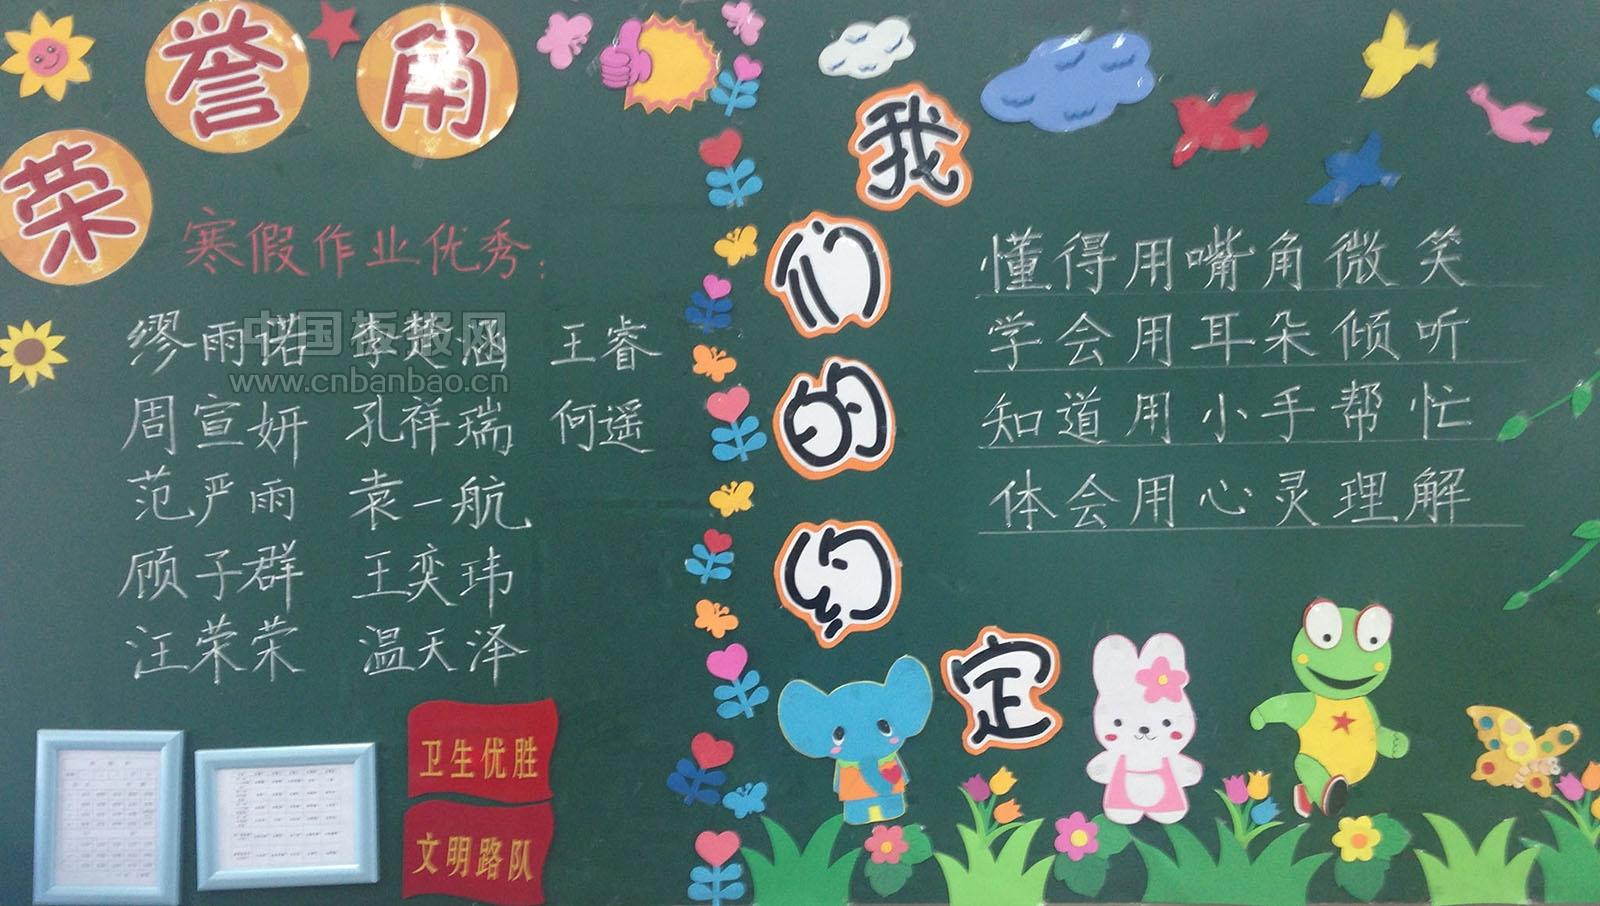 荣誉角
寒假作业优秀：
缪雨诺 李楚涵 王睿
周宣妍 孔祥瑞 何遥
范严雨 袁一航
顾子群 王奕玮
汪荣荣 温天泽
中国板报网
www.cnbanbao.cn
卫生优胜
文明路队
我们的约定
懂得用嘴角微笑
学会用耳朵倾听
知道用小手帮忙
体会用心灵理解